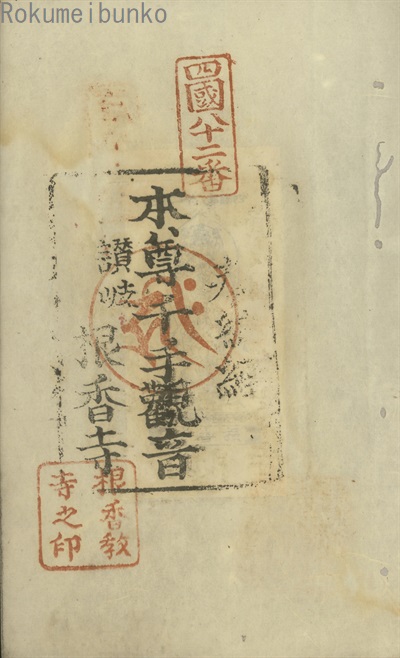 Rokumeibunko
四國八十二番
奉納經
本尊千手觀音
讃岐
根香寺
根香教
寺之印